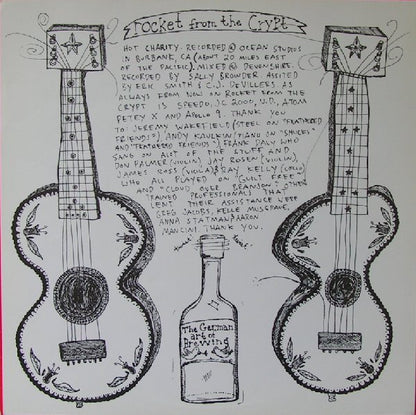 rocket from the crypt
HOT CHARITY. RECORDED @ OCEAN STUDIOS
IN BURBANK, CA (ABOUT 20 MILES EAST
OF THE PACIFIC). MIXED @ DEVONSHIRE.
RECORDED BY SALLY BROWDER ASSITED
BY ERIC SMITH & C.J. DEVILLERS AS
ALWAYS FROM NOW ON ROCKET FROM THE
CRYPT IS SPEEDO, JC 2000, N.D., ATOM
PETEY X AND APOLLO 9. THANK YOU
TO JEREMY WAKEFIELD (STEEL ON "FEATHERED
FRIENDS") ANDY KAULKIN (PIANO ON
AND "FEATHERED FRIENDS") FRANK DALY WHO
SANG ON ALOT OF THE STUFF AND
DON PALMER (VIOLIN) JAY ROSEN (VIOLIN),
JAMES ROSS (VIOLA) & RAY KELLY (CELLO)
WHO ALL PLAYED ON "GUILT FREE"
AND "CLOUD OVER BRANSON." OTHER
TRAINED PROFESSIONALS THAT
LENT THEIR ASSISTANCE WERE
GREG JACOBS, KELLE MUSGRAVE,
ANNA STATMAN & AARON
MANCINI. THANK YOU.
The German
art of
Brewing